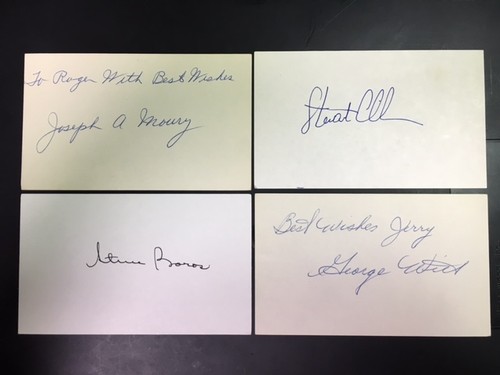 To Roger With Best Wishes
Joseph A Moury
Stuart
Steve Boros
Best Wishes Jerry
George Witt